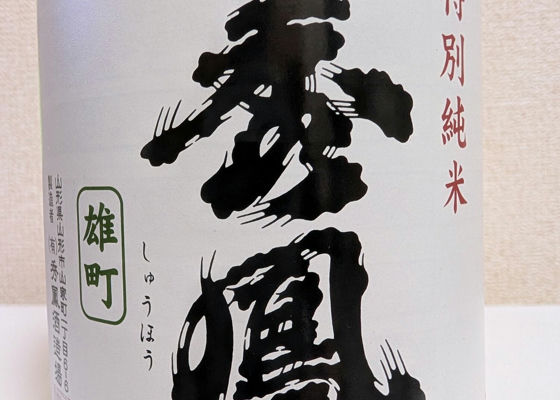 特別純米
秀鳳
しゅうほう
雄町
山形県山形市山家町
製造者 (有)秀鳳酒造場